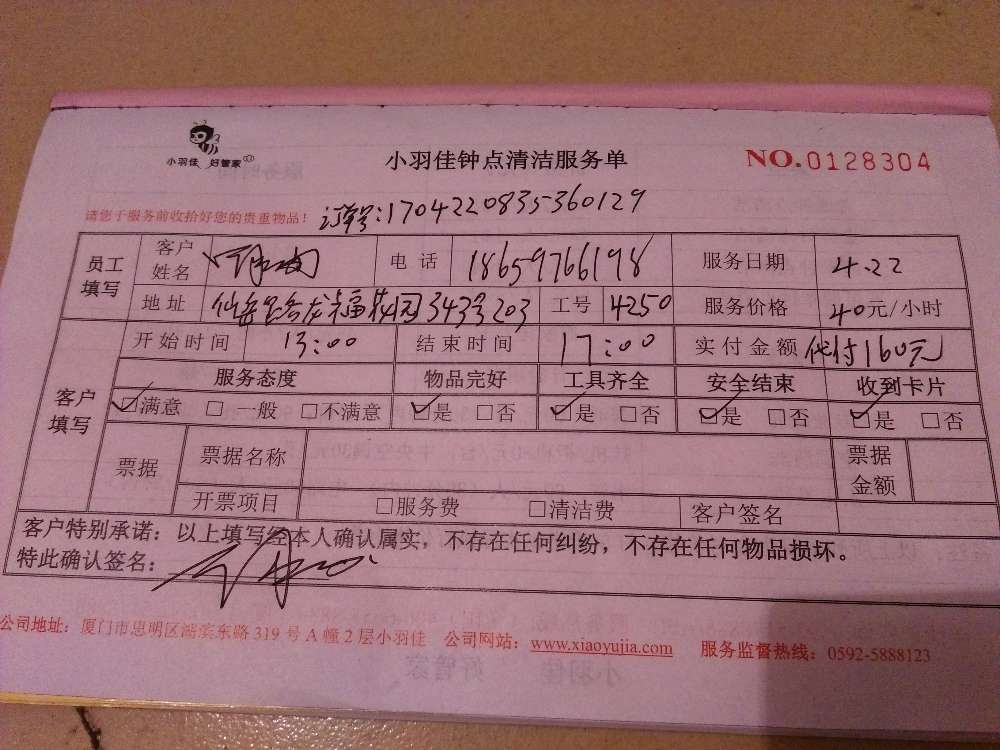 小羽佳 好管家
小羽佳钟点清洁服务单
NO.0128304
请您于服务前收拾好您的贵重物品！ 订单号:1704220835360129
员工填写 客户姓名 电话 18659766198 服务日期 4.22
地址 仙岳路龙福花园343号203 工号 4250 服务价格 40元/小时
客户填写 开始时间 13:00 结束时间 17:00 实付金额 代付160元
服务态度 物品完好 工具齐全 安全结束 收到卡片
☑满意 □一般 □不满意 ☑是 □否 ☑是 □否 ☑是 □否 ☑是 □否
票据 票据名称 票据金额
开票项目 □服务费 □清洁费 客户签名
客户特别承诺：以上填写经本人确认属实，不存在任何纠纷，不存在任何物品损坏。
特此确认签名：
公司地址：厦门市思明区湖滨东路319号A幢2层小羽佳 公司网站：www.xiaoyujia.com 服务监督热线：0592-5888123